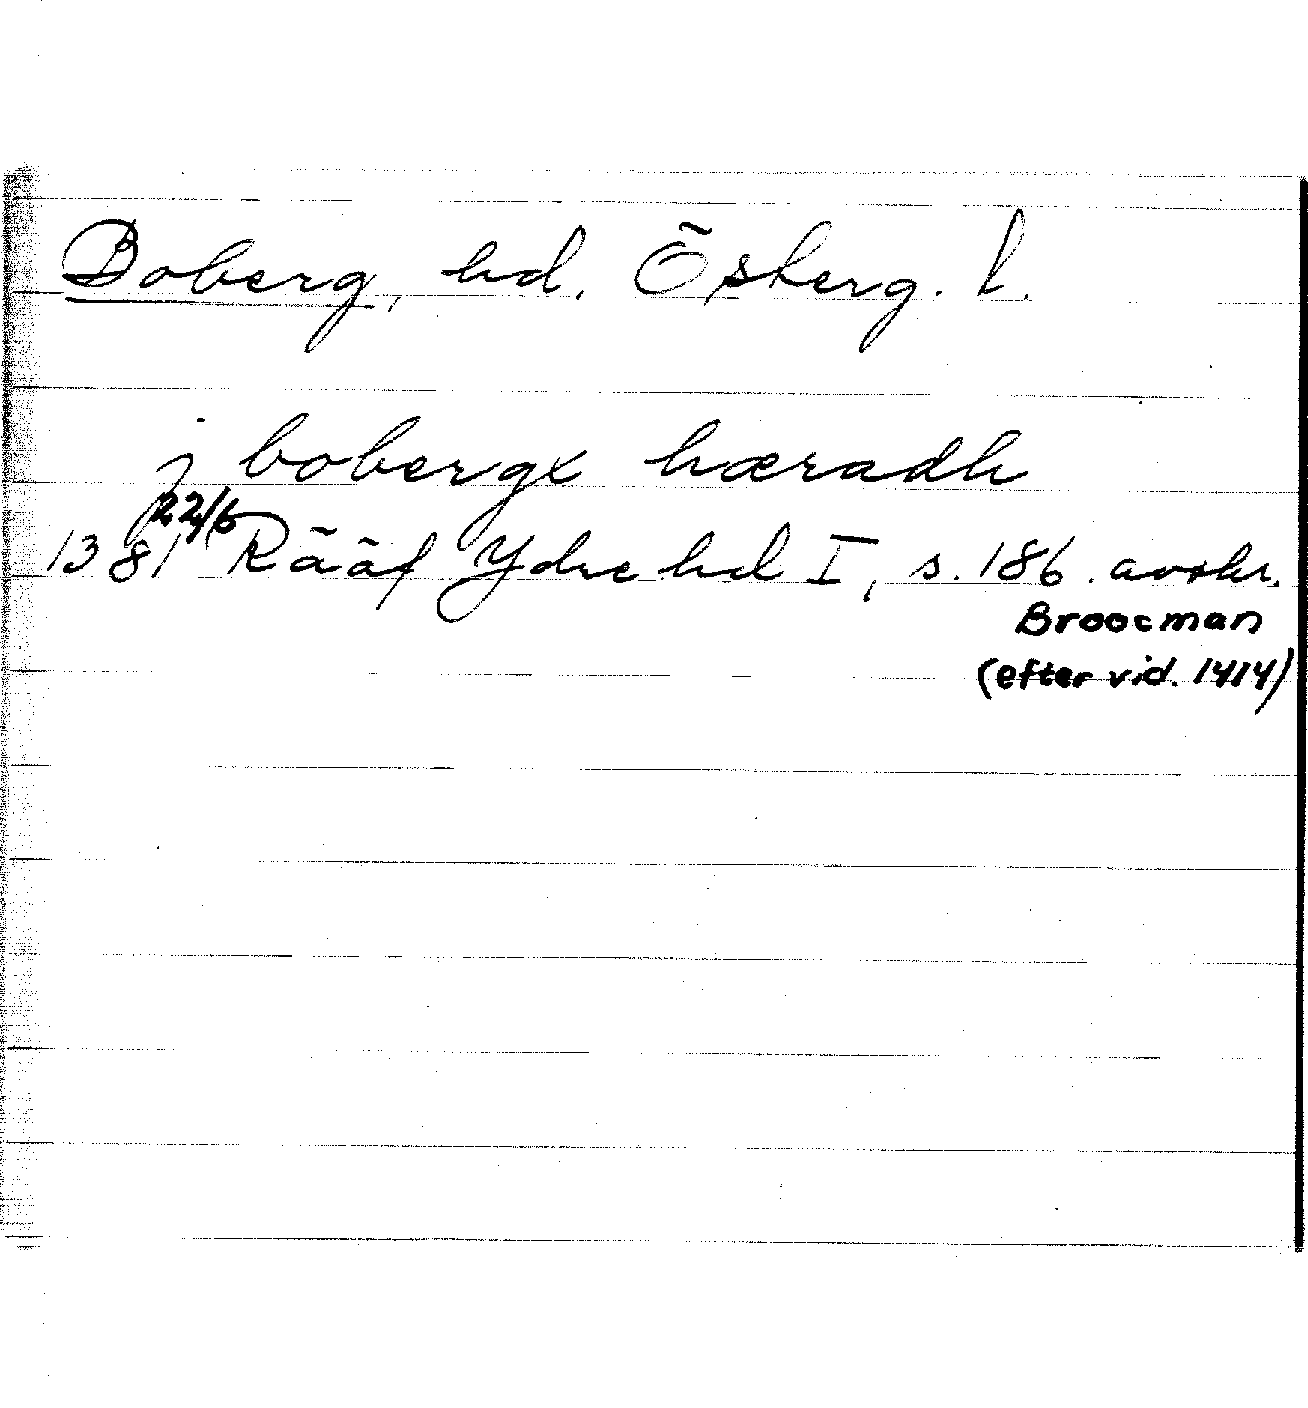 Boberg, hd. Östberg. l.
j bobergx hæradh
1381 22/6 Rääf Ydre hd I, s. 186. avskr.
Broocman
(efter vid. 1414)